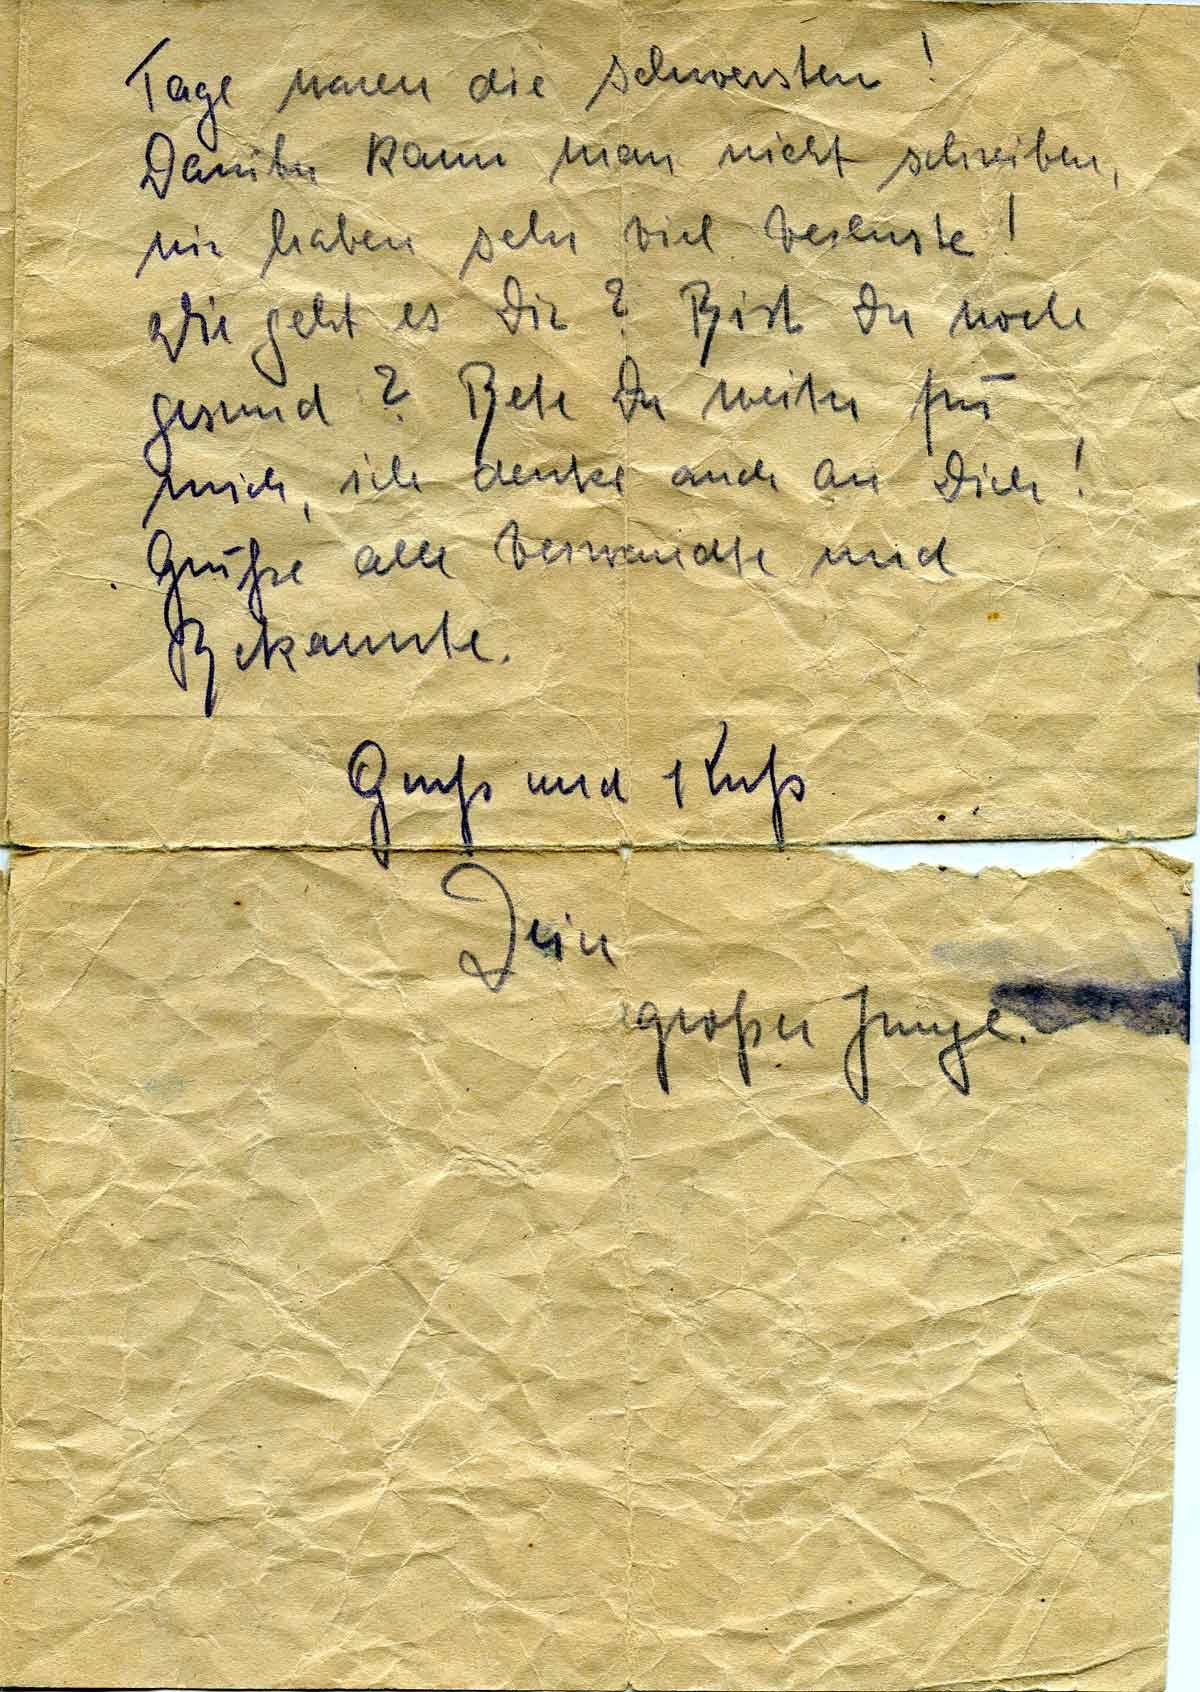 Tage waren die schwersten!
Darüber kann man nicht schreiben,
wir haben sehr viel Verluste!
Wie geht es Dir? Bist Du noch
gesund? Bete Du weiter für
mich, ich denke auch an Dich!
Grüße alle Verwandte und
Bekannte.
Gruß und 1 Kuß
Dein
großer Junge.